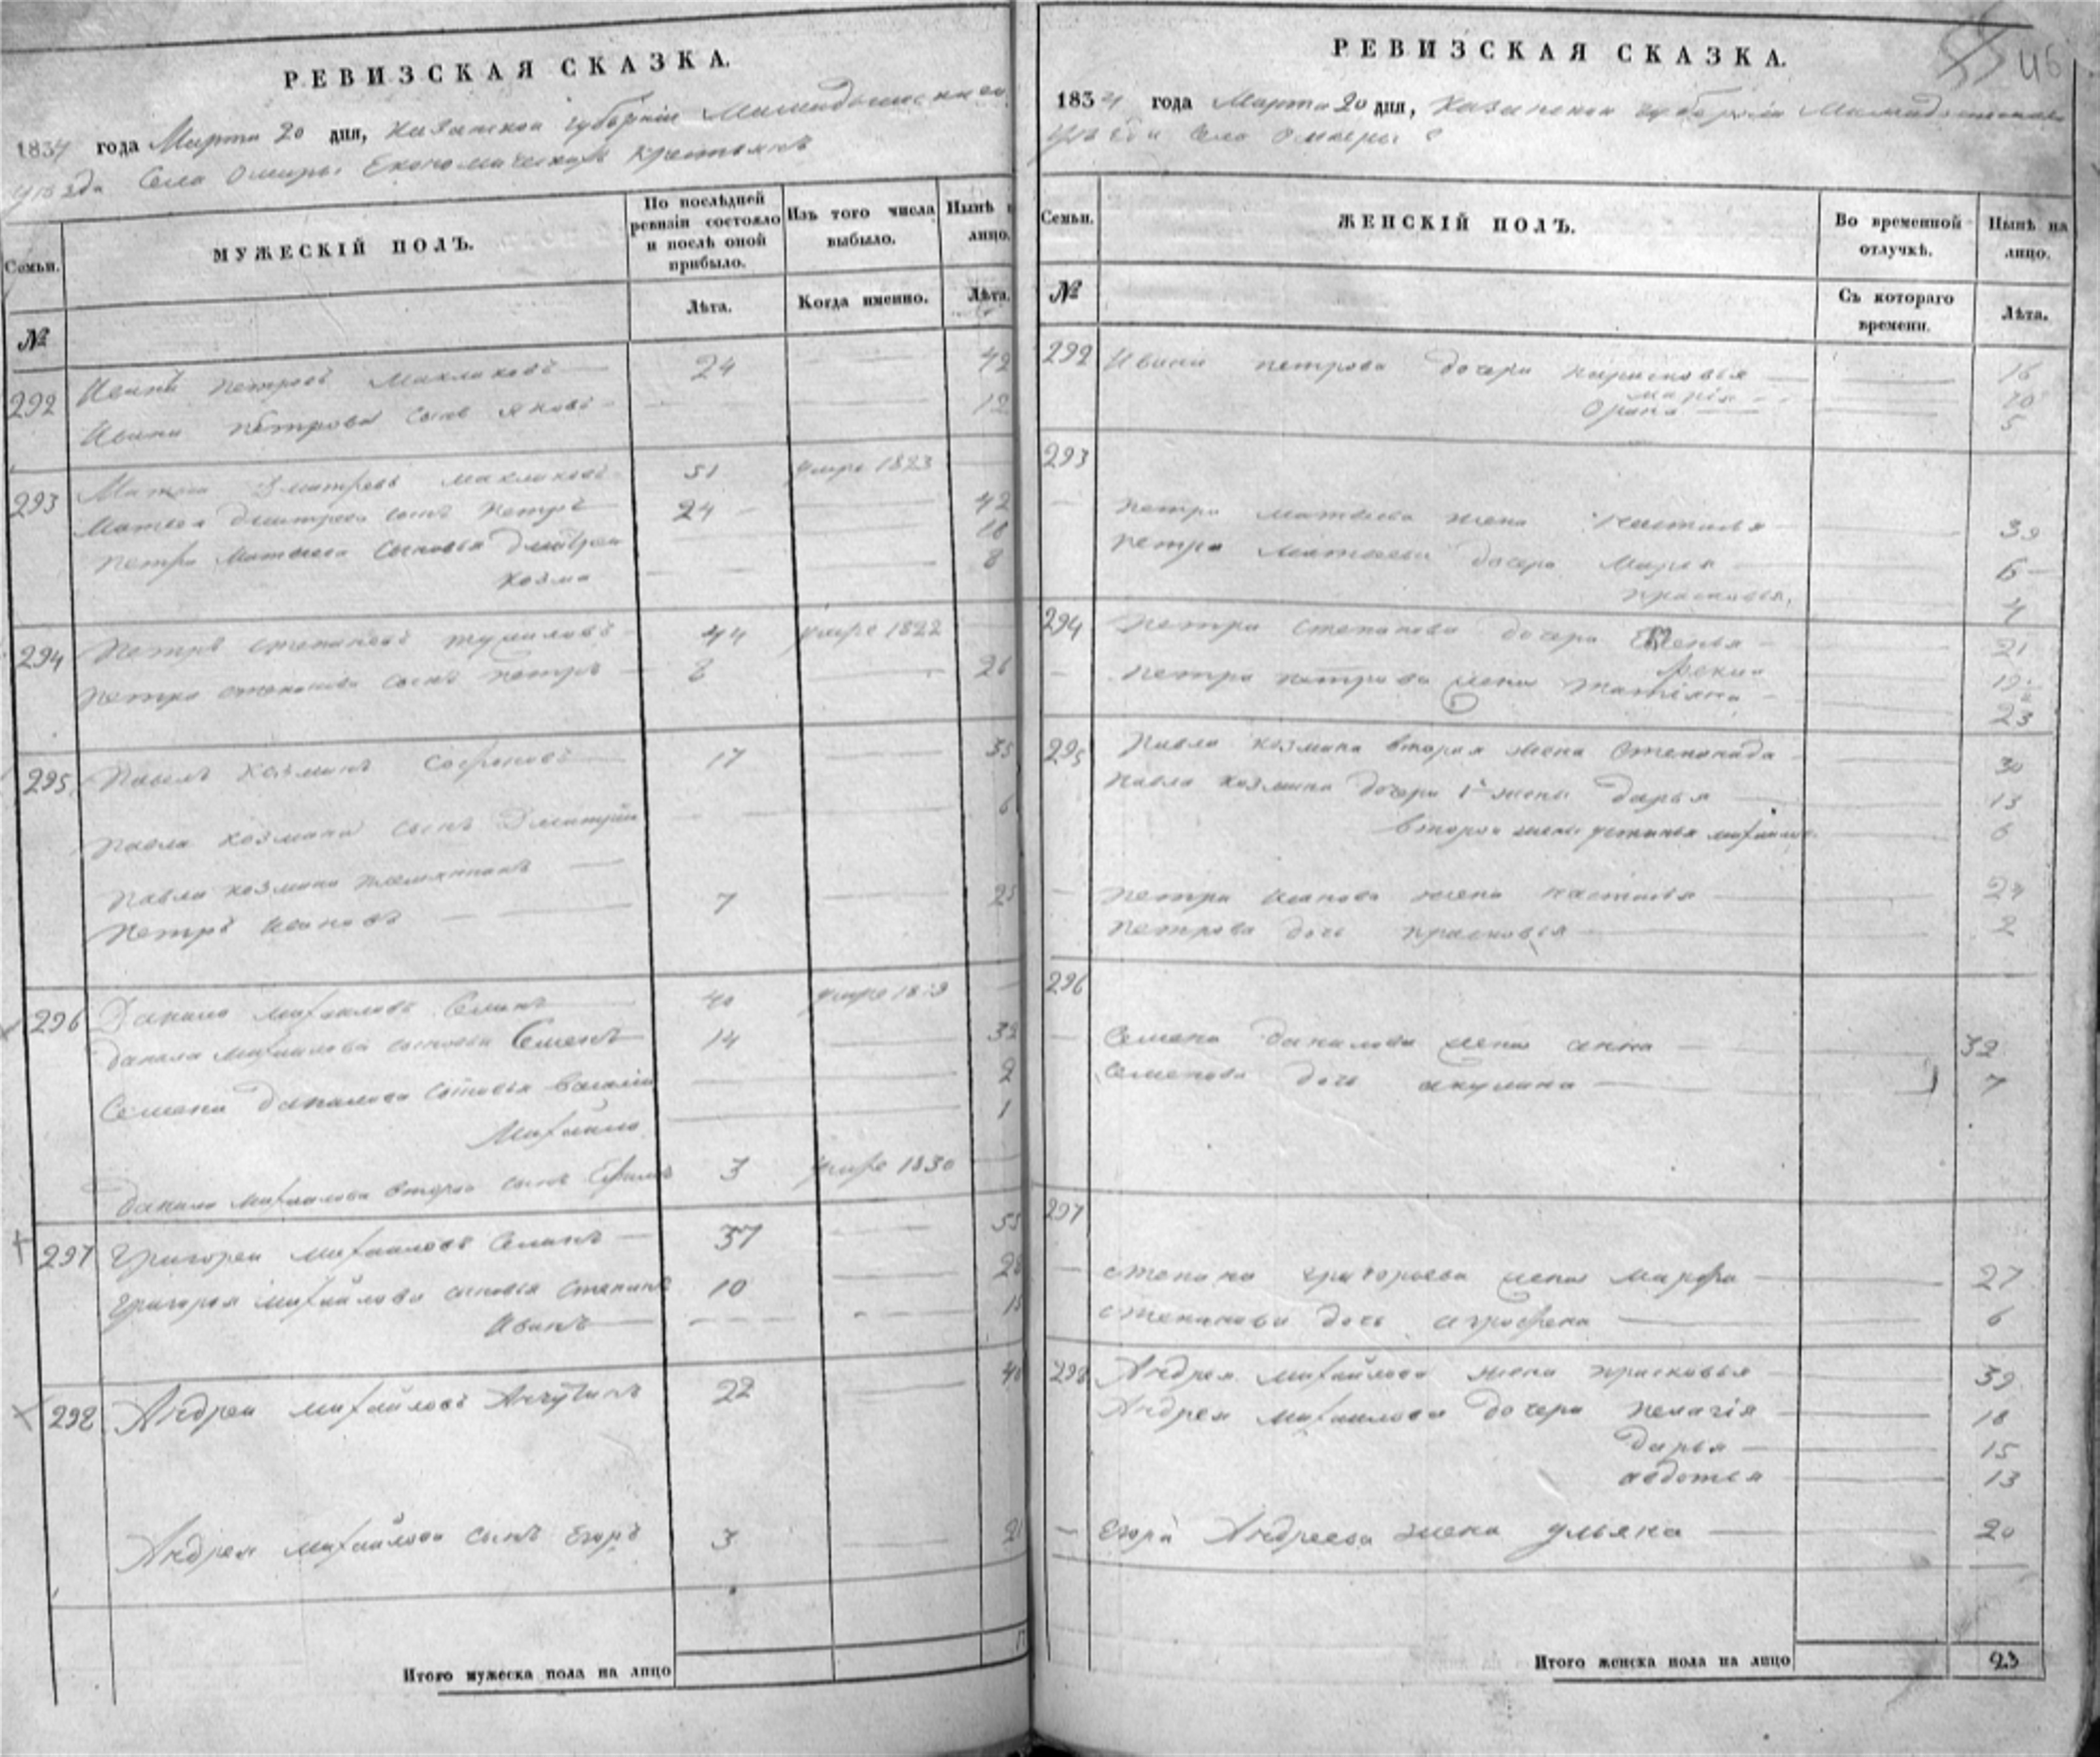 РЕВИЗСКАЯ СКАЗКА.
1834 года Марта 20 дня, Казанской губерніи Мамадышскаго
уѣзда Села Омары Економическихъ крестьянъ
Семьи.
МУЖЕСКІЙ ПОЛЪ.
По послѣдней ревизіи состояло и послѣ оной прибыло.
Изъ того числа выбыло.
Нынѣ
лицо.
№
Лѣта.
Когда именно.
Лѣта.
292 Иванъ Петровъ Маклаковъ 24 42
Ивана Петрова сынъ Яковъ 12
293 Матвеи Дмитревъ Маклаковъ 51 умре 1823
Матвея Дмитрева сынъ Петръ 24 42
Петра Матвеева сыновья Дмитреи 18
Козма 8
294 Петръ Степановъ 44 умре 1822
Петра Степанова сынъ Петръ 8 26
295 Павелъ Козминъ Софроновъ 17 35
Павла Козмина сынъ Дмитрій 6
Павла Козмина племянникъ
Петръ Ивановъ 7 25
296 Данило Михаиловъ Семинъ 40 умре
Данила Михаилова сыновья Семенъ 14 32
Семена Данилова сыновья Василіи 2
Михаило 1
Данила Михаилова второй сынъ Ефимъ 3 умре 1830
297 Григореи Михаиловъ Семинъ 37 55
Григорья Михайлова сыновья Степанъ 10 28
Иванъ
298 Андреи Михайловъ 22 40
Андрея Михайлова сынъ Егоръ 3 21
Итого мужеска пола на лицо
РЕВИЗСКАЯ СКАЗКА.
46
1834 года Марта 20 дня, Казанской губерніи Мамадышскаго
уѣзда Села Омары
Семьи.
ЖЕНСКІЙ ПОЛЪ.
Во временной отлучкѣ.
Нынѣ на лицо.
№
Съ котораго времени.
Лѣта.
292 Ивана Петрова дочери Парасковья 16
Марія 10
Орина 5
293
Петра Матвеева жена Настасья 39
Петра Матвеева дочери Марья 6
Прасковья 4
294 Петра Степанова дочери 21
19
Петра Петрова жена Татіяна 23
295 Павла Козмина вторая жена Степанида 30
Павла Козмина дочери 1й жены Дарья 13
второй жены Устинья 6
Петра Иванова жена Настасья 24
Петрова дочь Прасковья 2
296
Семена Данилова жена Анна 32
Семенова дочь Акулина 7
297
Степана Григорьева жена Марфа 27
Степанова дочь Аграфена 6
298 Андрея Михайлова жена Прасковья 39
Андрея Михаилова дочери Пелагія 18
Дарья 15
Авдотья 13
Егора Андреева жена Ульяна 20
Итого женска пола на лицо 23